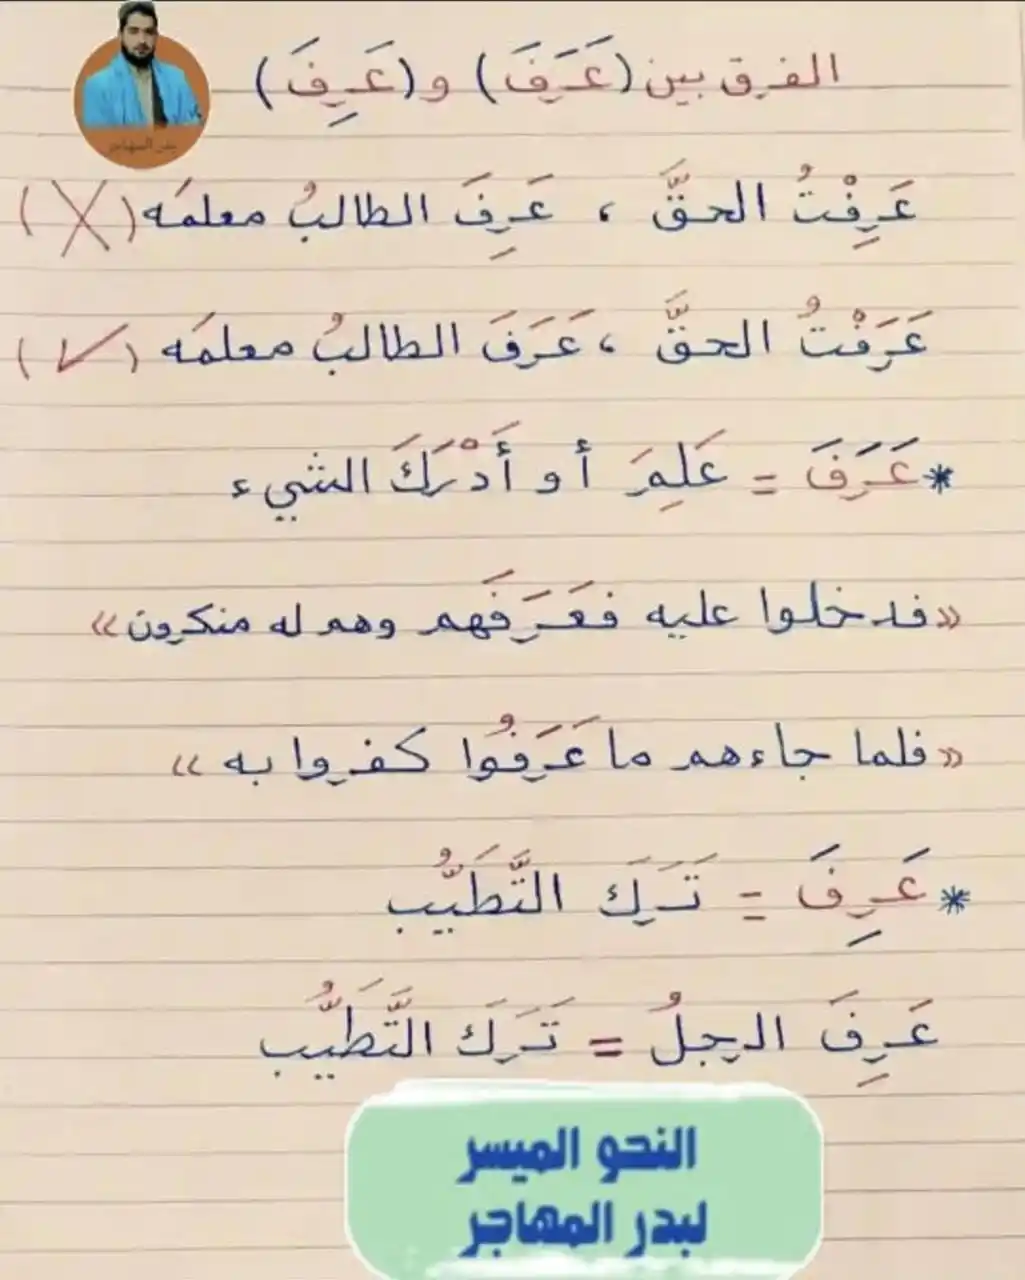 الفرق بين (عَرَفَ) و (عَرِفَ)
بدر المهاجر
عَرِفْتُ الحقَّ ، عَرِفَ الطالبُ معلمَه (X)
عَرَفْتُ الحقَّ ، عَرَفَ الطالبُ معلمَه (✓)
* عَرَفَ = عَلِمَ أو أَدْرَكَ الشيء
«فدخلوا عليه فعَرَفَهم وهم له منكرون»
«فلما جاءهم ما عَرَفُوا كفروا به»
* عَرِفَ = تَرَكَ التَّطَيُّب
عَرِفَ الرجلُ = تَرَكَ التَّطَيُّب
النحو الميسر
لبدر المهاجر